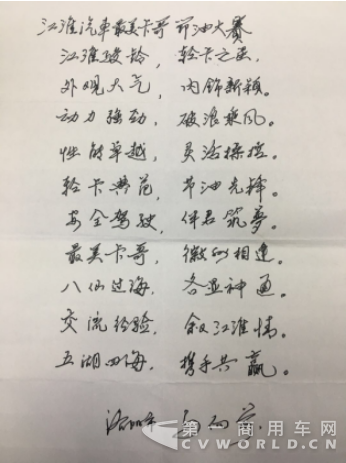 江淮汽車最美卡哥 节油大赛
江淮骏铃，轻卡之王，
外观大气，内饰新颖。
动力强劲，破浪乘风。
性能卓越，灵活操控。
轻卡典范，节油先锋。
安全驾驶，伴君筑夢。
最美卡哥，微山相逢。
八仙过海，各显神通。
交流经验，叙江淮情。
五湖四海，携手共赢。
第一商用车网
CVWORLD.CN